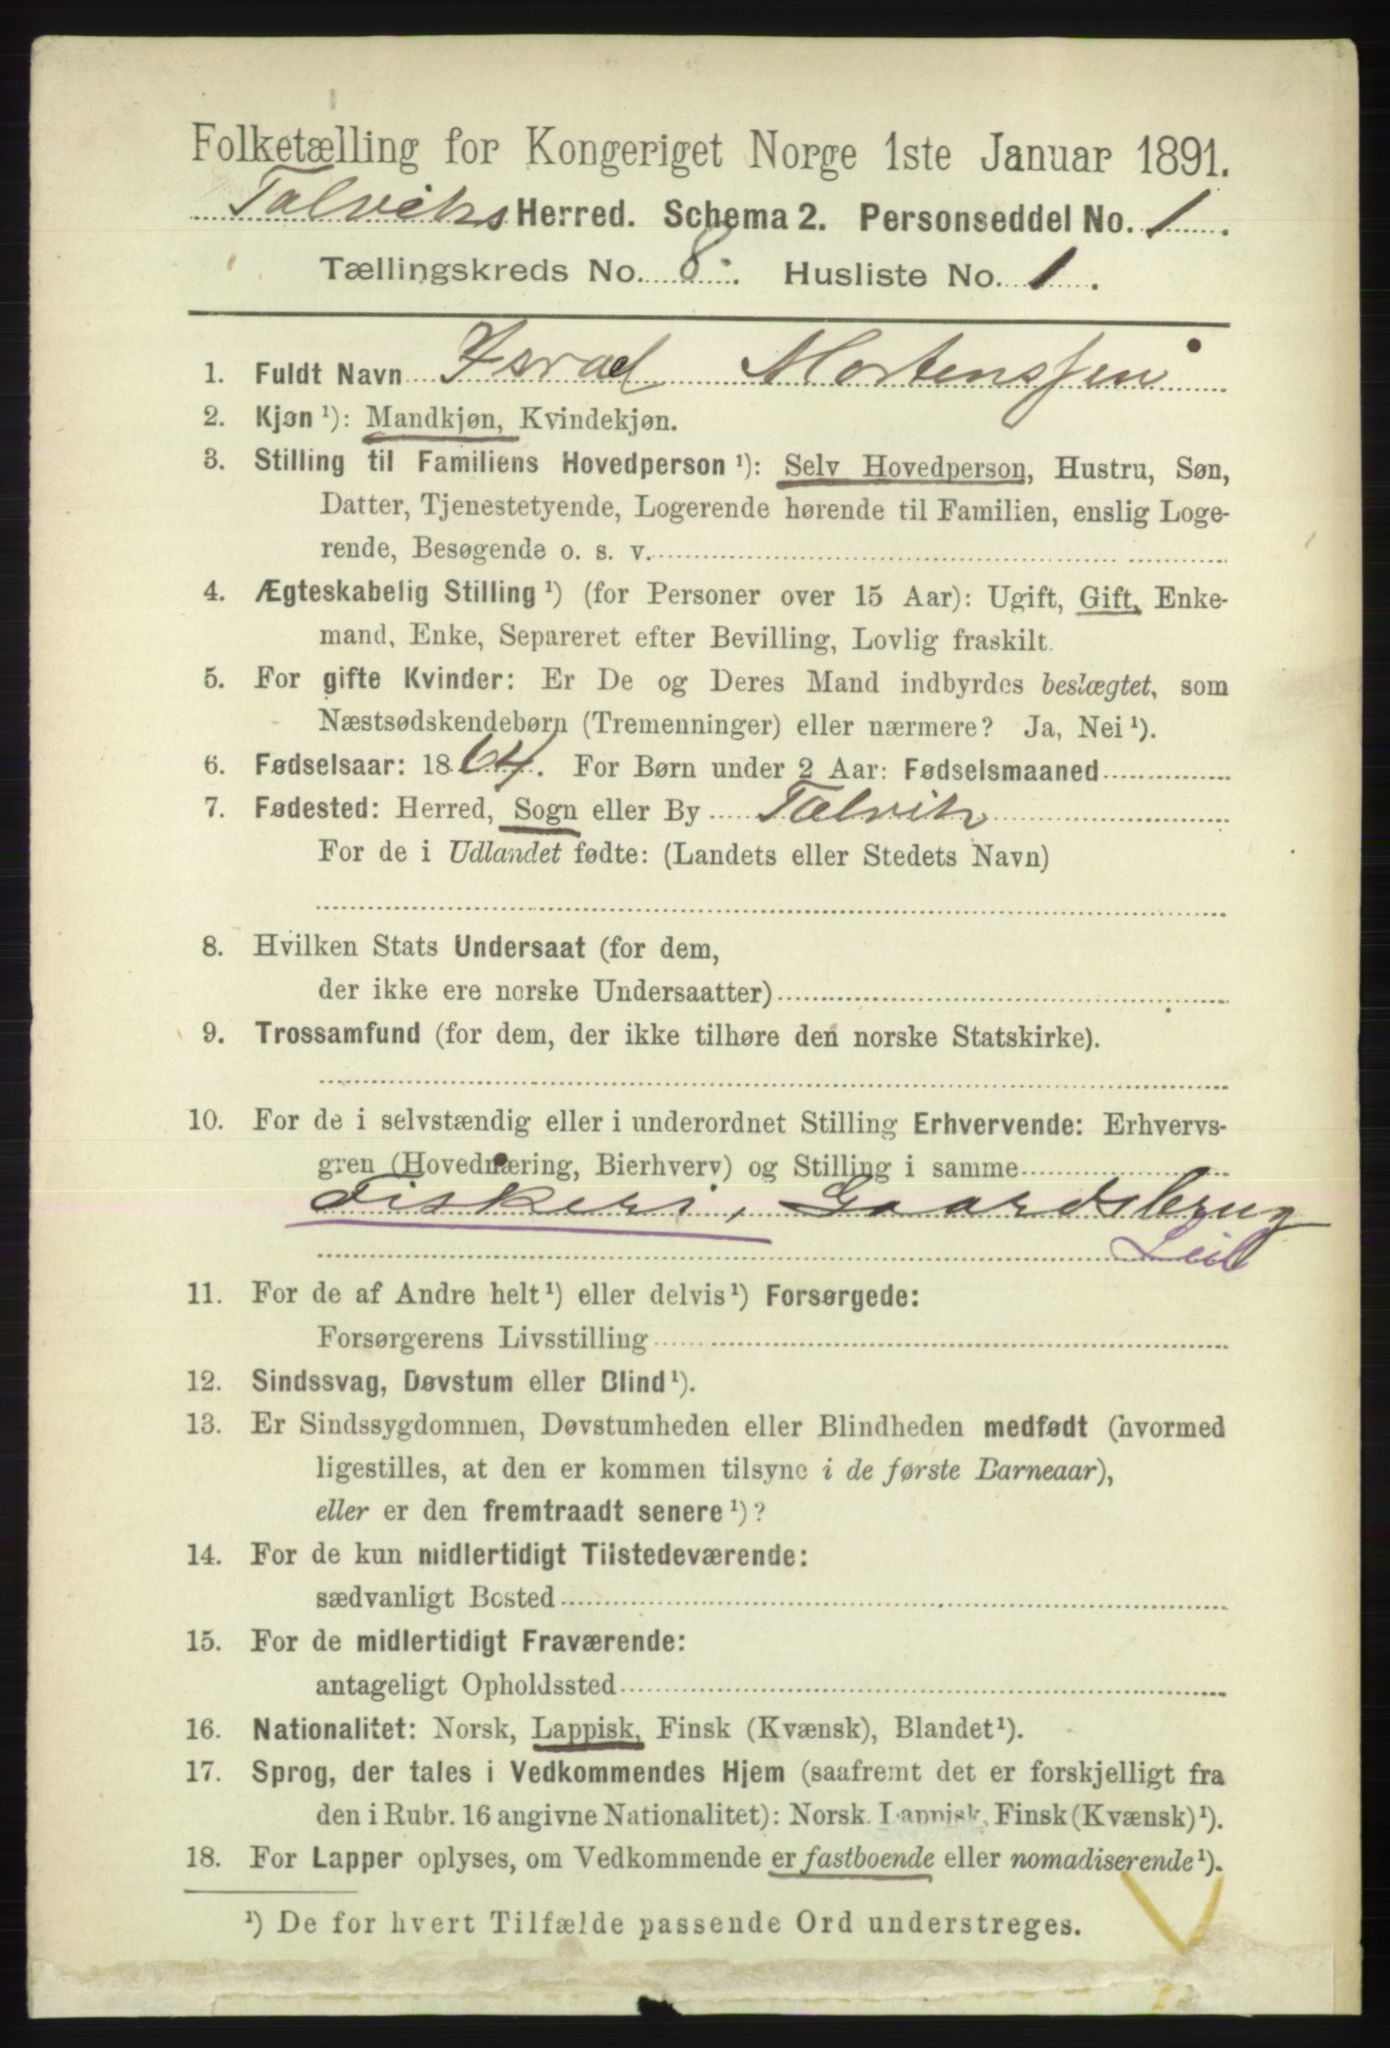 Folketælling for Kongeriget Norge 1ste Januar 1891.
Talviks Herred. Schema 2. Personseddel No. 1.
Tællingskreds No. 8. Husliste No. 1.
1. Fuldt Navn Israel Mortenssen
2. Kjøn ¹): Mandkjøn, Kvindekjøn.
3. Stilling til Familiens Hovedperson ¹): Selv Hovedperson, Hustru, Søn,
Datter, Tjenestetyende, Logerende hørende til Familien, enslig Loge-
rende, Besøgende o. s. v.
4. Ægteskabelig Stilling ¹) (for Personer over 15 Aar): Ugift, Gift, Enke-
mand, Enke, Separeret efter Bevilling, Lovlig fraskilt.
5. For gifte Kvinder: Er De og Deres Mand indbyrdes beslægtet, som
Næstsødskendebørn (Tremenninger) eller nærmere? Ja, Nei ¹).
6. Fødselsaar: 1864. For Børn under 2 Aar: Fødselsmaaned
7. Fødested: Herred, Sogn eller By Talvik
For de i Udlandet fødte: (Landets eller Stedets Navn)
8. Hvilken Stats Undersaat (for dem,
der ikke ere norske Undersaatter)
9. Trossamfund (for dem, der ikke tilhøre den norske Statskirke).
10. For de i selvstændig eller i underordnet Stilling Erhvervende: Erhvervs-
gren (Hovednæring, Bierhverv) og Stilling i samme
Fiskeri, Gaardsbrug
Leil
11. For de af Andre helt ¹) eller delvis ¹) Forsørgede:
Forsørgerens Livsstilling
12. Sindssvag, Døvstum eller Blind ¹).
13. Er Sindssygdommen, Døvstumheden eller Blindheden medfødt (hvormed
ligestilles, at den er kommen tilsyne i de første Barneaar),
eller er den fremtraadt senere ¹)?
14. For de kun midlertidigt Tilstedeværende:
sædvanligt Bosted
15. For de midlertidigt Fraværende:
antageligt Opholdssted
16. Nationalitet: Norsk, Lappisk, Finsk (Kvænsk), Blandet ¹).
17. Sprog, der tales i Vedkommendes Hjem (saafremt det er forskjelligt fra
den i Rubr. 16 angivne Nationalitet): Norsk. Lappisk, Finsk (Kvænsk) ¹).
18. For Lapper oplyses, om Vedkommende er fastboende eller nomadiserende ¹).
¹) De for hvert Tilfælde passende Ord understreges.